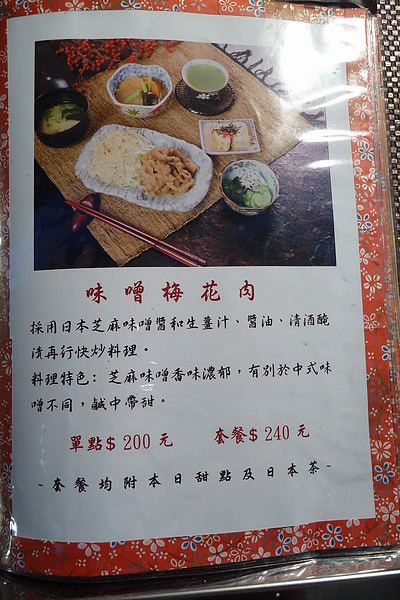 味噌梅花肉
採用日本芝麻味噌醬和生薑汁、醬油、清酒醃
漬再行快炒料理。
料理特色：芝麻味噌香味濃郁，有別於中式味
噌不同，鹹中帶甜。
單點$200元　套餐$240元
~套餐均附本日甜點及日本茶~